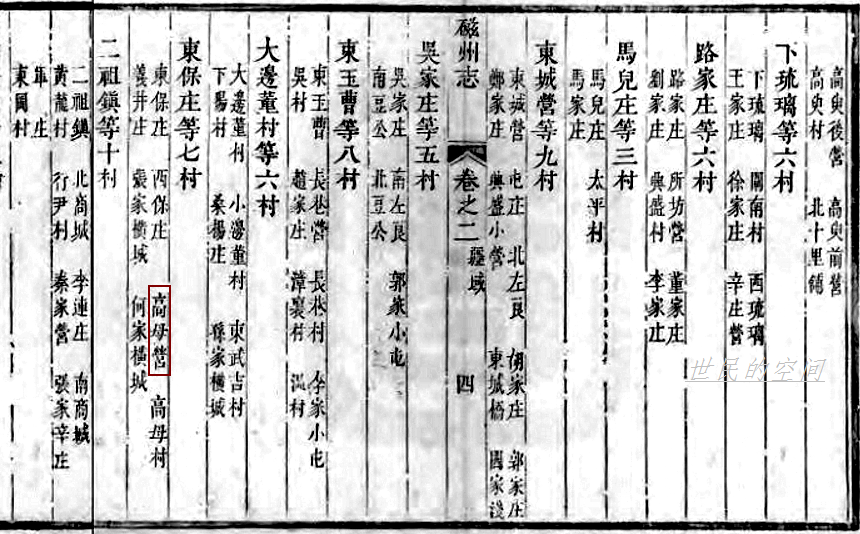 高臾後營 高臾前營
高臾村 北十里鋪
下琉璃等六村
下琉璃 閻南村 西琉璃
王家庄 徐家庄 辛庄營
路家庄等六村
路家庄 所坊營 董家庄
劉家庄 興盛村 李家庄
馬兒庄等三村
馬兒庄 太平村
馬家庄
東城營等九村
東城營 屯庄 北左良 胡家庄 郭家庄
鄭家庄 興盛小營 東城橋 閻家淺
磁州志 卷之二 疆域 四
吳家庄等五村
吳家庄 南左良 郭家小屯
南豆公 北豆公
東玉曹等八村
東玉曹 長巷營 長巷村 李家小屯
吳村 趙家庄 漳裏村
大邊董村等六村
大邊董村 小邊董村 東武吉村
下暢村 桑楊庄 孫家橫城
東保庄等七村
東保庄 西保庄 高母營 高母村
義井庄 張家橫城 何家橫城
二祖鎮等十村
二祖鎮 北尚城 李連庄 南商城
黃龍村 行尹村 秦家營 張家辛庄
庄
東岡村
世民的空间